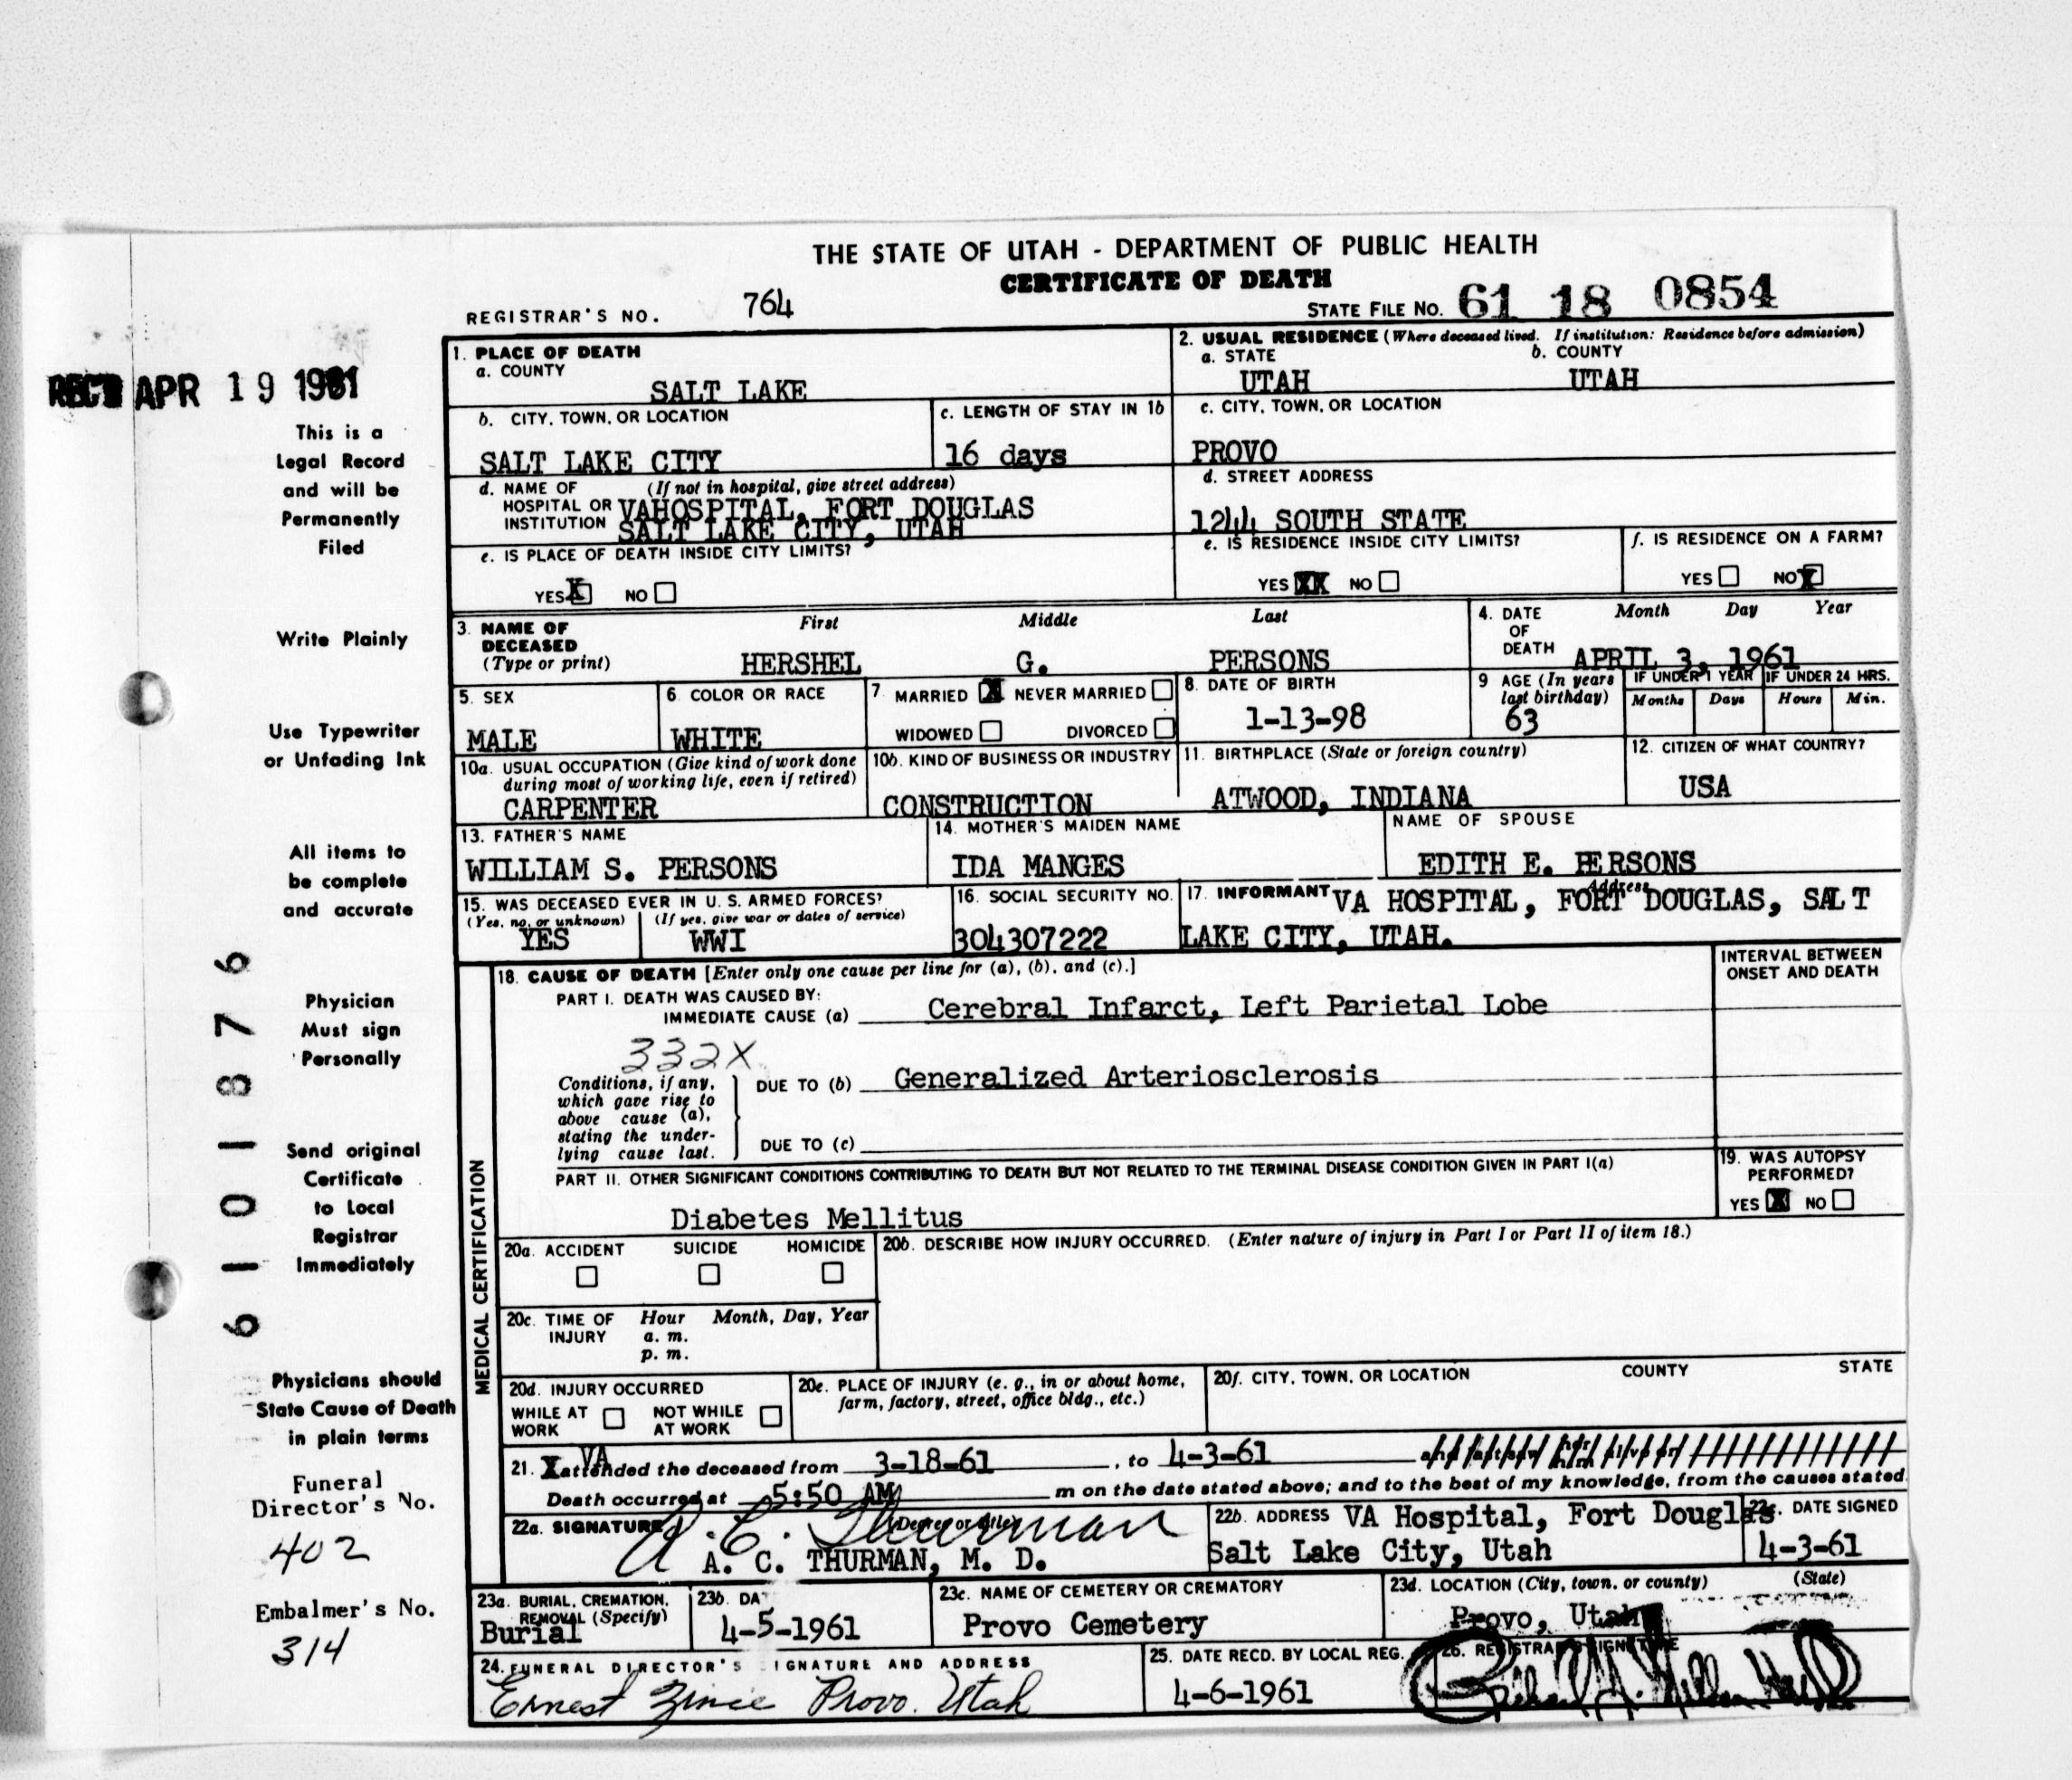 THE STATE OF UTAH - DEPARTMENT OF PUBLIC HEALTH
CERTIFICATE OF DEATH
REGISTRAR'S NO. 764
STATE FILE NO. 61 18 0854
REC'D APR 19 1961
This is a
Legal Record
and will be
Permanently
Filed
Write Plainly
Use Typewriter
or Unfading Ink
All items to
be complete
and accurate
Physician
Must sign
Personally
Send original
Certificate
to Local
Registrar
Immediately
Physicians should
State Cause of Death
in plain terms
Funeral
Director's No.
402
Embalmer's No.
314
6101876
1. PLACE OF DEATH
a. COUNTY
SALT LAKE
b. CITY, TOWN, OR LOCATION
SALT LAKE CITY
c. LENGTH OF STAY IN 1b
16 days
d. NAME OF (If not in hospital, give street address)
HOSPITAL OR VAHOSPITAL, FORT DOUGLAS
INSTITUTION SALT LAKE CITY, UTAH
e. IS PLACE OF DEATH INSIDE CITY LIMITS?
YES X NO
2. USUAL RESIDENCE (Where deceased lived. If institution: Residence before admission)
a. STATE
UTAH
b. COUNTY
UTAH
c. CITY, TOWN, OR LOCATION
PROVO
d. STREET ADDRESS
1244 SOUTH STATE
e. IS RESIDENCE INSIDE CITY LIMITS?
YES XX NO
f. IS RESIDENCE ON A FARM?
YES NO X
3. NAME OF DECEASED (Type or print)
First Middle Last
HERSHEL G. PERSONS
4. DATE OF DEATH Month Day Year
APRIL 3, 1961
5. SEX
MALE
6. COLOR OR RACE
WHITE
7. MARRIED X NEVER MARRIED
WIDOWED DIVORCED
8. DATE OF BIRTH
1-13-98
9 AGE (In years last birthday)
63
IF UNDER 1 YEAR IF UNDER 24 HRS.
Months Days Hours Min.
10a. USUAL OCCUPATION (Give kind of work done during most of working life, even if retired)
CARPENTER
10b. KIND OF BUSINESS OR INDUSTRY
CONSTRUCTION
11. BIRTHPLACE (State or foreign country)
ATWOOD, INDIANA
12. CITIZEN OF WHAT COUNTRY?
USA
13. FATHER'S NAME
WILLIAM S. PERSONS
14. MOTHER'S MAIDEN NAME
IDA MANGES
NAME OF SPOUSE
EDITH E. PERSONS
15. WAS DECEASED EVER IN U. S. ARMED FORCES?
(Yes, no, or unknown) (If yes, give war or dates of service)
YES WWI
16. SOCIAL SECURITY NO.
304307222
17. INFORMANT Address
VA HOSPITAL, FORT DOUGLAS, SALT
LAKE CITY, UTAH.
MEDICAL CERTIFICATION
18. CAUSE OF DEATH [Enter only one cause per line for (a), (b), and (c).]
INTERVAL BETWEEN
ONSET AND DEATH
PART I. DEATH WAS CAUSED BY:
IMMEDIATE CAUSE (a) Cerebral Infarct, Left Parietal Lobe
332X
Conditions, if any,
which gave rise to
above cause (a),
stating the under-
lying cause last.
DUE TO (b) Generalized Arteriosclerosis
DUE TO (c)
PART II. OTHER SIGNIFICANT CONDITIONS CONTRIBUTING TO DEATH BUT NOT RELATED TO THE TERMINAL DISEASE CONDITION GIVEN IN PART I(a)
Diabetes Mellitus
19. WAS AUTOPSY
PERFORMED?
YES X NO
20a. ACCIDENT SUICIDE HOMICIDE
20b. DESCRIBE HOW INJURY OCCURRED. (Enter nature of injury in Part I or Part II of item 18.)
20c. TIME OF INJURY Hour Month, Day, Year
a. m.
p. m.
20d. INJURY OCCURRED
WHILE AT WORK NOT WHILE AT WORK
20e. PLACE OF INJURY (e. g., in or about home,
farm, factory, street, office bldg., etc.)
20f. CITY, TOWN, OR LOCATION COUNTY STATE
21. VA attended the deceased from 3-18-61, to 4-3-61
Death occurred at 5:50 AM m on the date stated above; and to the best of my knowledge, from the causes stated
22a. SIGNATURE (Degree or title)
A. C. Thurman
A. C. THURMAN, M. D.
22b. ADDRESS VA Hospital, Fort Douglas
Salt Lake City, Utah
22c. DATE SIGNED
4-3-61
23a. BURIAL, CREMATION,
REMOVAL (Specify)
Burial
23b. DA
4-5-1961
23c. NAME OF CEMETERY OR CREMATORY
Provo Cemetery
23d. LOCATION (City, town, or county) (State)
Provo, Utah
24. FUNERAL DIRECTOR'S SIGNATURE AND ADDRESS
Ernest Provo, Utah
25. DATE RECD. BY LOCAL REG.
4-6-1961
26. REGISTRAR'S SIGNATURE